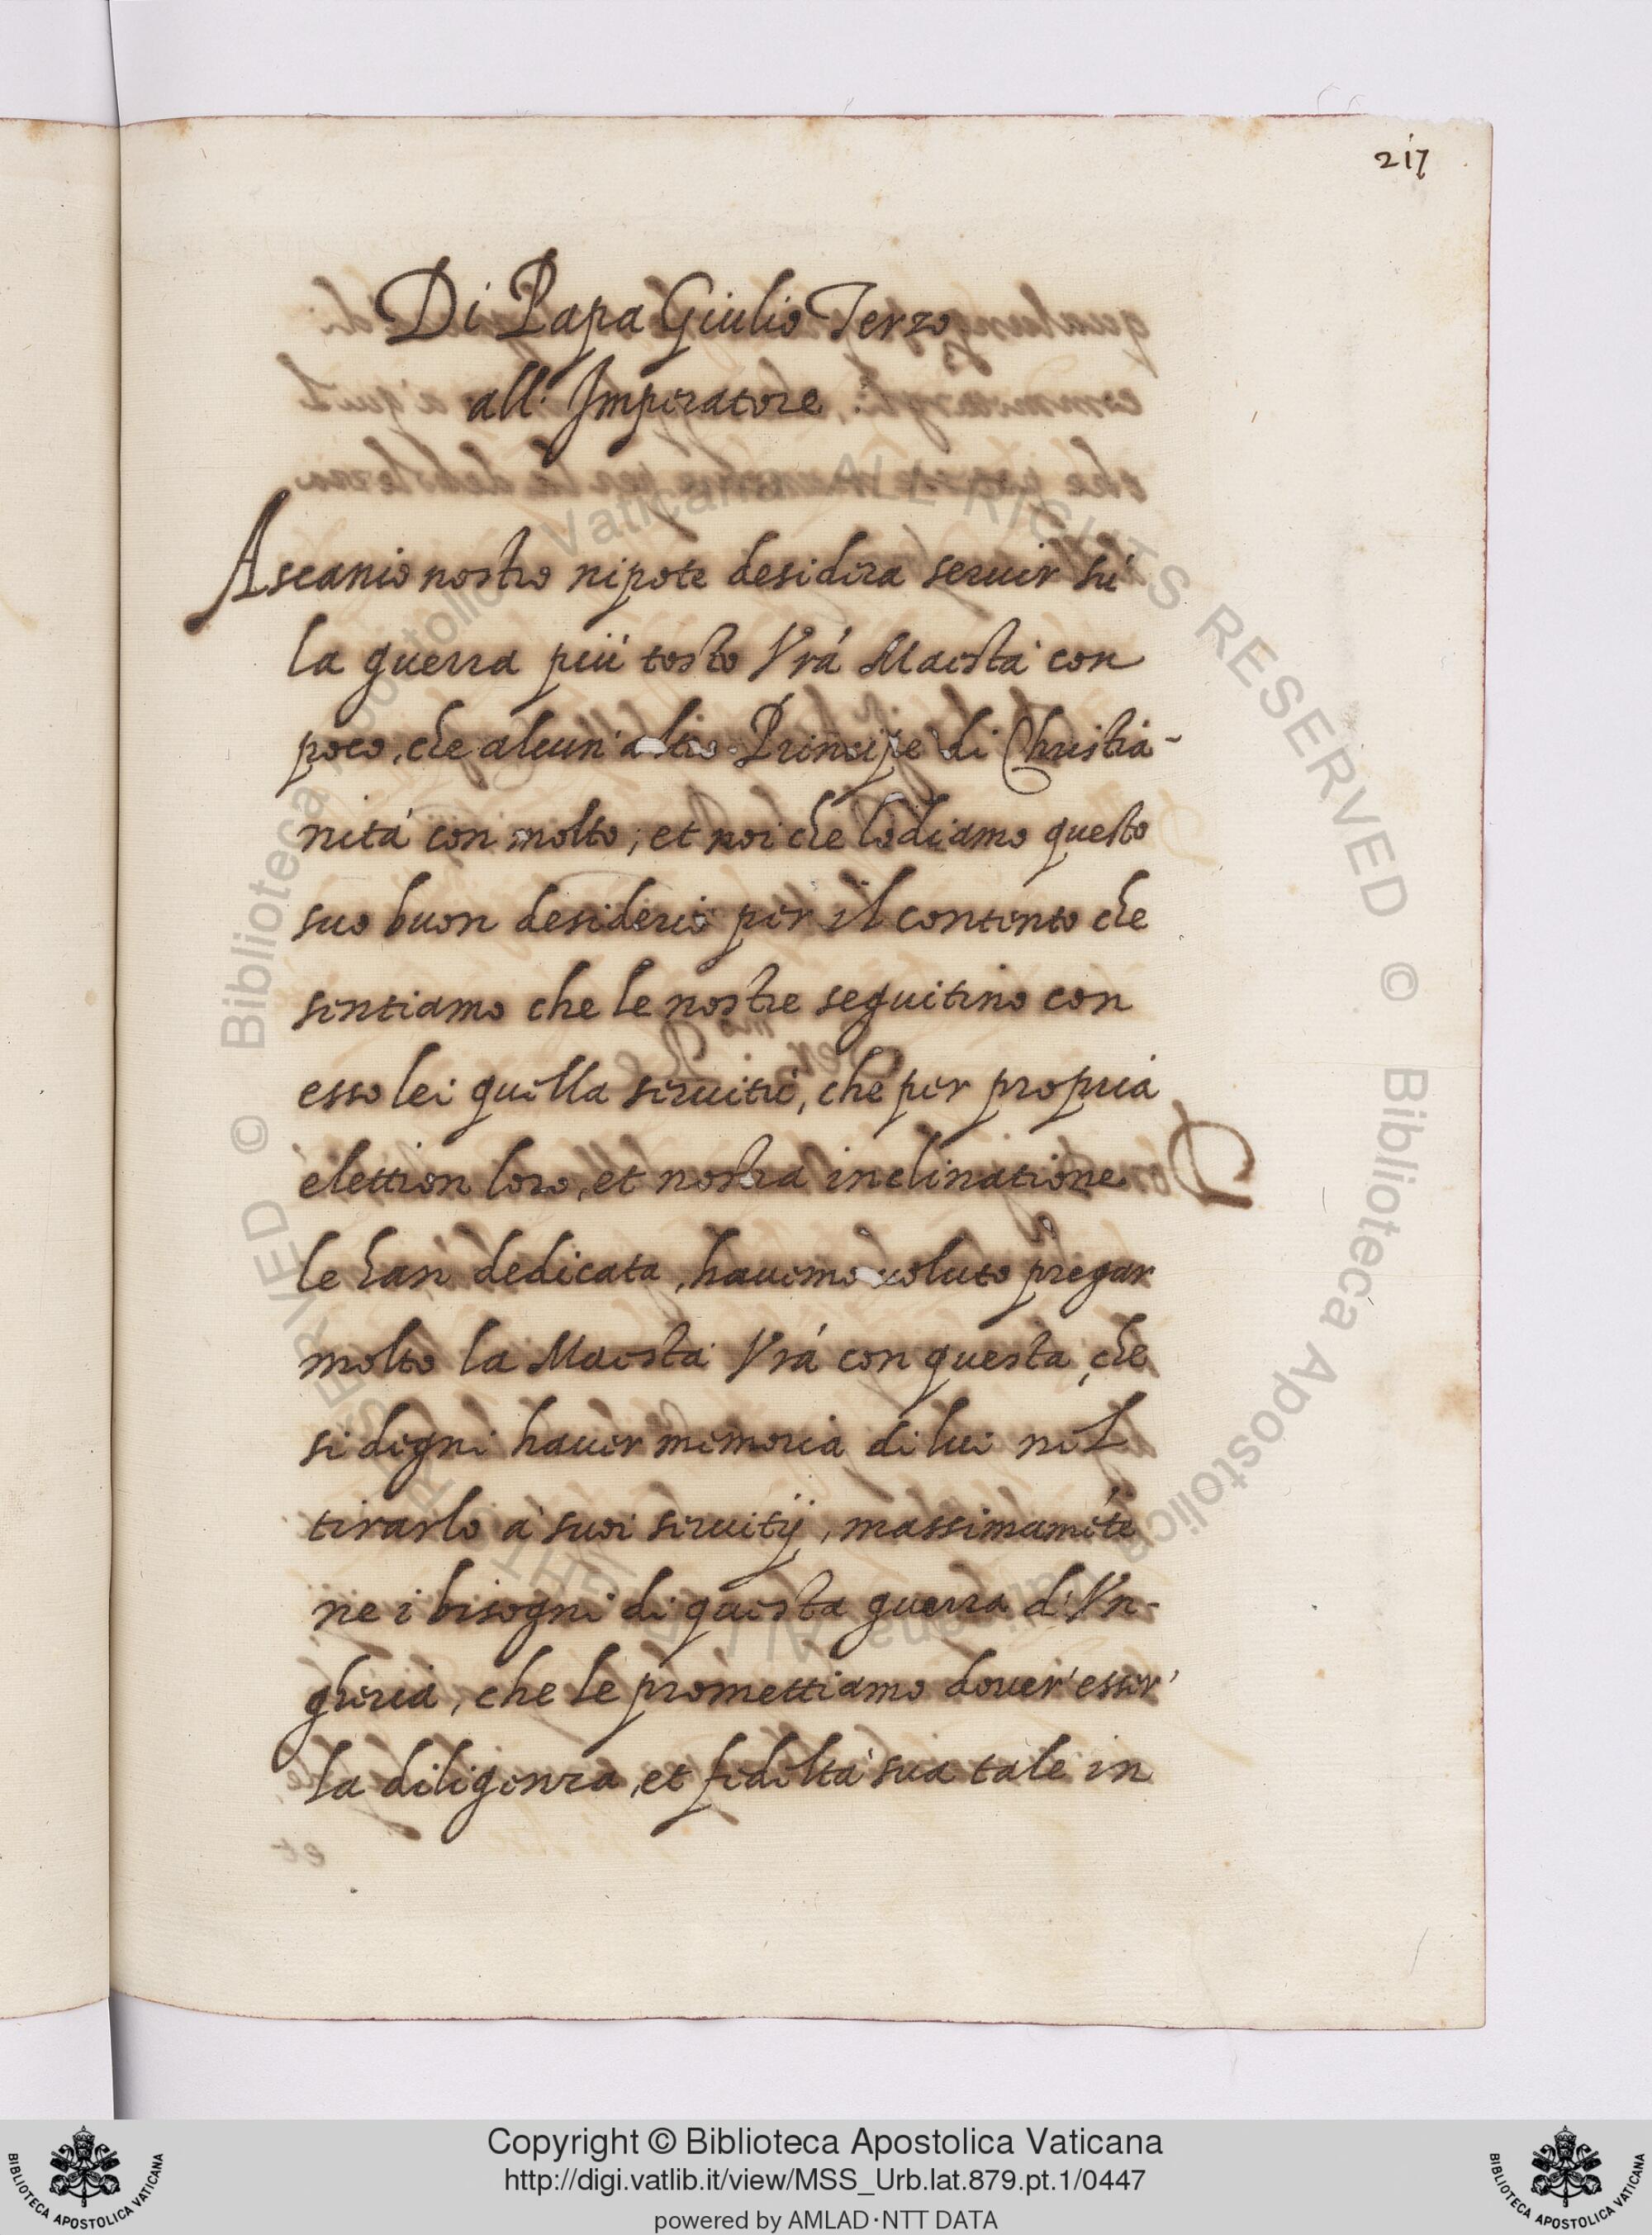 217
Di Papa Giulio Terzo
all' Imperatore.
Ascanio nostro nipote desidera seruir sù
la guerra più tosto Vrá Maestà con
poco, che alcun' altro Principe di Christia-
nità con molto; et noi che lodiamo questo
suo buon desiderio per il contento che
sentiamo che le nostre seguitino con
esso lei quella seruitù, che per propria
elettion loro, et nostra inclinatione
le han dedicata, hauemo uoluto pregar
molto la Maestà Vrá con questa, che
si degni hauer memoria di lui nel
tirarlo à suoi seruitij, massimaméte
ne i bisogni di questa guerra d'Vn-
gheria, che le promettiamo douer' esser'
la diligenza, et fedeltà sua tale in
© Biblioteca Apostolica Vaticana ALL RIGHTS RESERVED © Biblioteca Apostolica Vaticana ALL RIGHTS RESERVED
BIBLIOTECA APOSTOLICA VATICANA
Copyright © Biblioteca Apostolica Vaticana
http://digi.vatlib.it/view/MSS_Urb.lat.879.pt.1/0447
powered by AMLAD·NTT DATA
BIBLIOTECA APOSTOLICA VATICANA